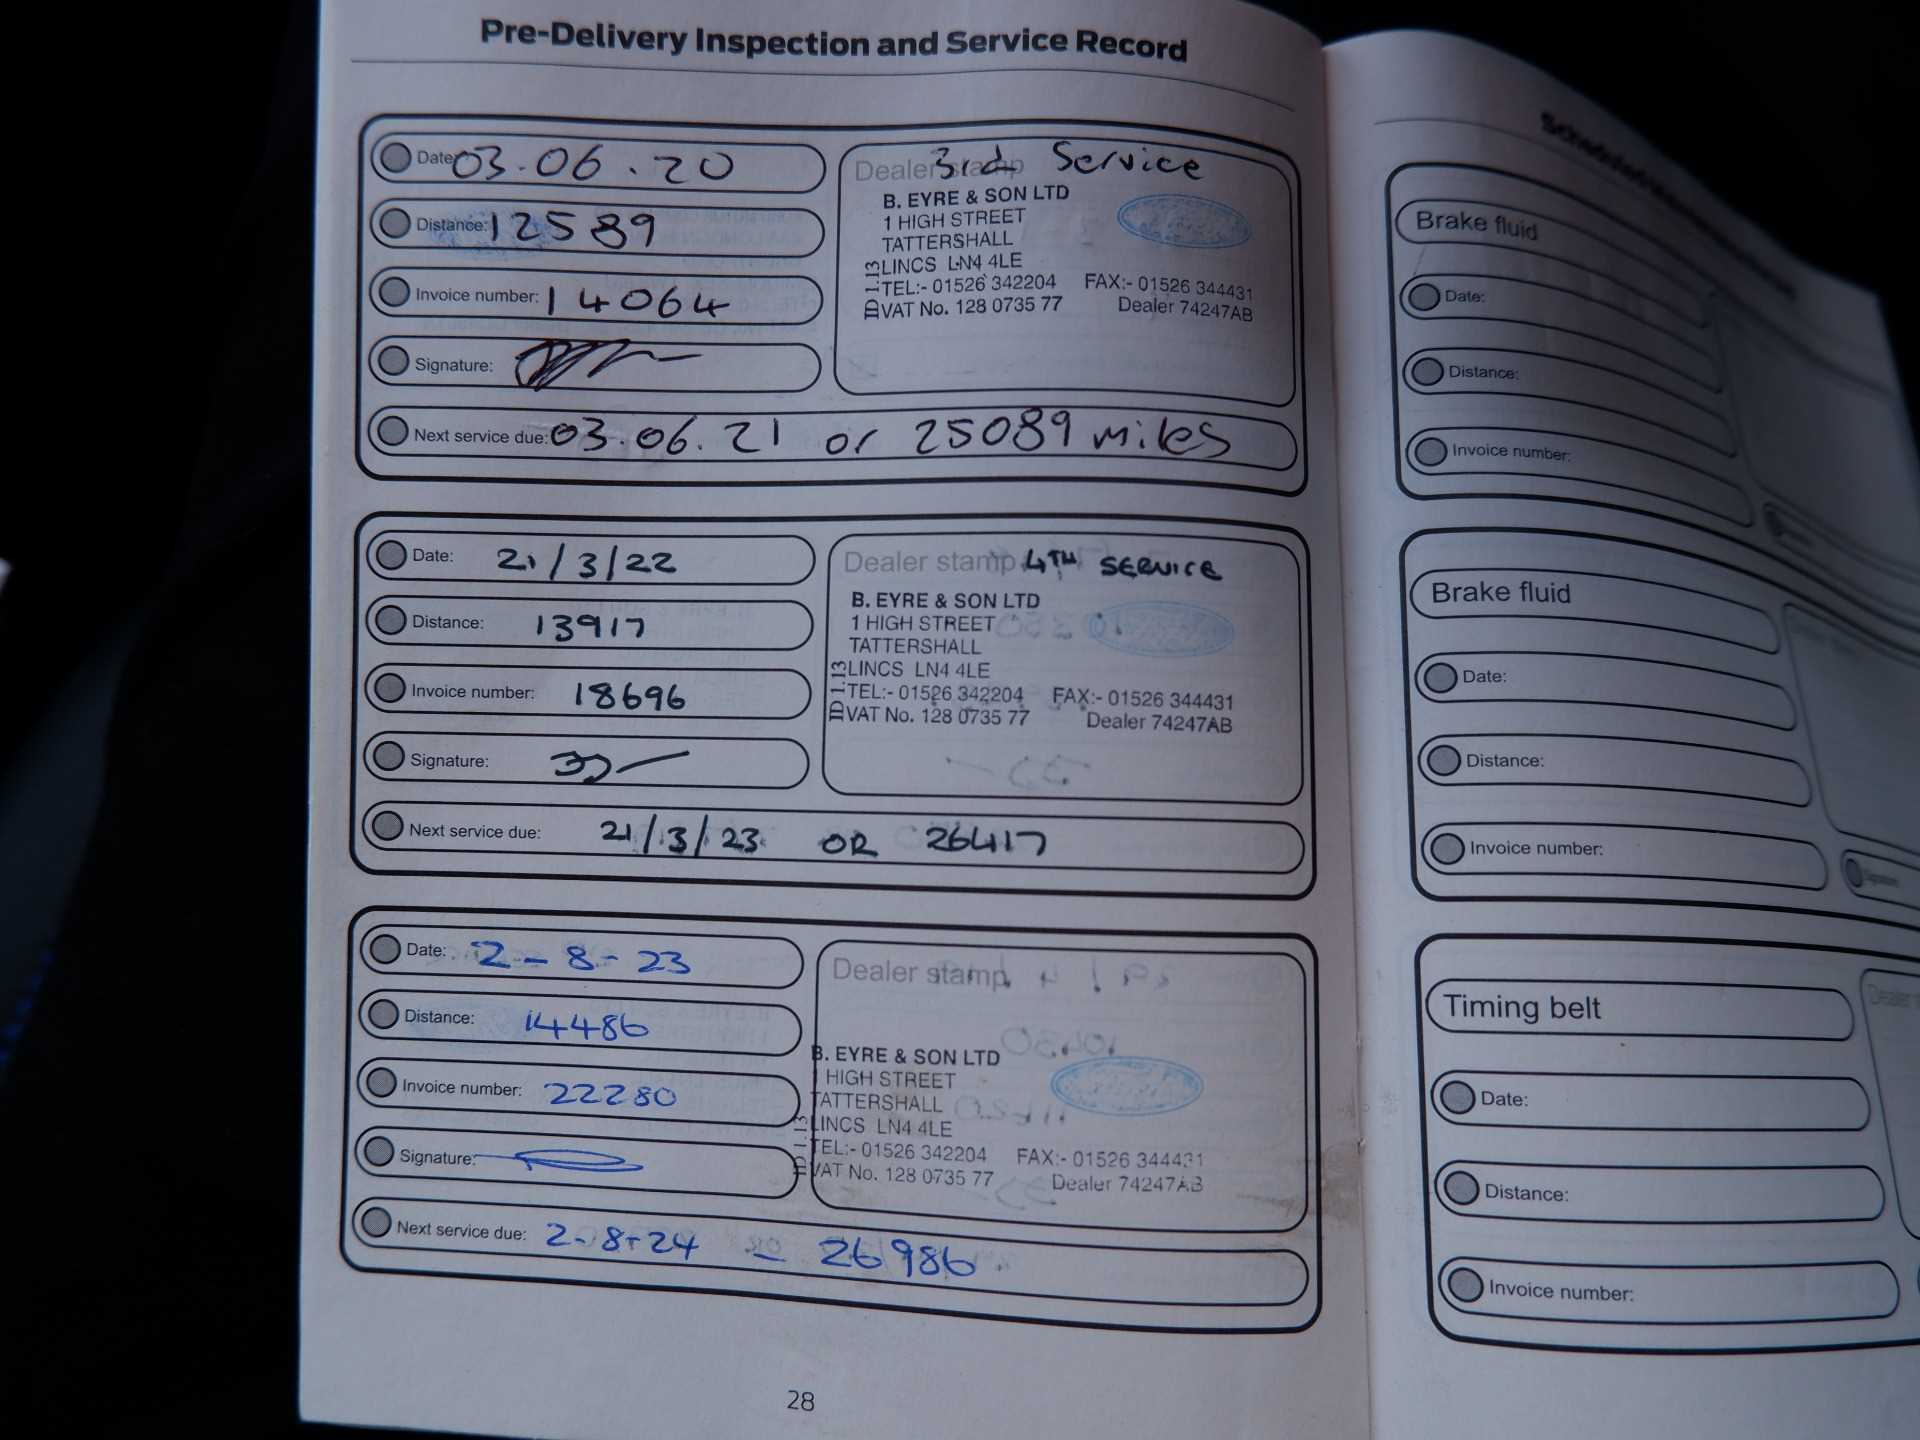 Pre-Delivery Inspection and Service Record
Date: 03.06.20
Distance: 12589
Invoice number: 14064
Signature:
Next service due: 03.06.21 or 25089 miles
Dealer stamp 3rd Service
B. EYRE & SON LTD
1 HIGH STREET
TATTERSHALL
LINCS LN4 4LE
TEL:- 01526 342204 FAX:- 01526 344431
VAT No. 128 0735 77 Dealer 74247AB
ID 1.13
Date: 21/3/22
Distance: 13917
Invoice number: 18696
Signature:
Next service due: 21/3/23 OR 26417
Dealer stamp 4TH SERVICE
B. EYRE & SON LTD
1 HIGH STREET
TATTERSHALL
LINCS LN4 4LE
TEL:- 01526 342204 FAX:- 01526 344431
VAT No. 128 0735 77 Dealer 74247AB
ID 1.13
Date: 2-8-23
Distance: 14486
Invoice number: 22280
Signature:
Next service due: 2-8-24 - 26986
Dealer stamp
B. EYRE & SON LTD
1 HIGH STREET
TATTERSHALL
LINCS LN4 4LE
TEL:- 01526 342204 FAX:- 01526 344431
VAT No. 128 0735 77 Dealer 74247AB
ID 1.13
28
Brake fluid
Date:
Distance:
Invoice number:
Brake fluid
Date:
Distance:
Invoice number:
Signature:
Timing belt
Date:
Distance:
Invoice number: